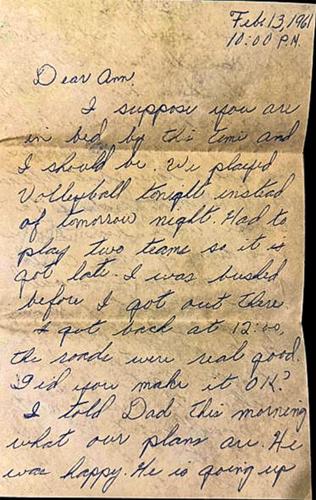 Feb. 13, 1961
10:00 P.M.
Dear Ann,
I suppose you are
in bed by this time and
I should be. We played
Volleyball tonight instead
of tomorrow night. Had to
play two teams so it is
got late. I was bushed
before I got out there.
I got back at 12:00,
the roads were real good.
Did you make it OK?
I told Dad this morning
what our plans are. He
was happy. He is going up